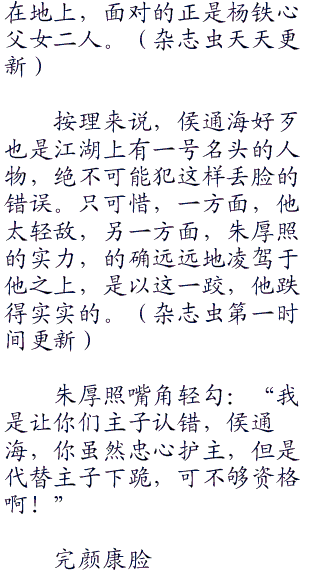 在地上，面对的正是杨铁心
父女二人。（杂志虫天天更
新）
按理来说，侯通海好歹
也是江湖上有一号名头的人
物，绝不可能犯这样丢脸的
错误。只可惜，一方面，他
太轻敌，另一方面，朱厚照
的实力，的确远远地凌驾于
他之上，是以这一跤，他跌
得实实的。（杂志虫第一时
间更新）
朱厚照嘴角轻勾：“我
是让你们主子认错，侯通
海，你虽然忠心护主，但是
代替主子下跪，可不够资格
啊！”
完颜康脸